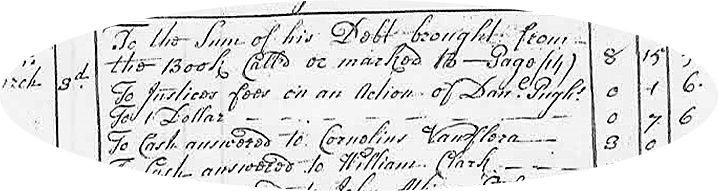 To the Sum of his Debt brought from
the Book Call'd or marked B — Page (14) 8 15
rch 3d. To Justices fees on an Action of Dane. Pughs. 0 1 6.
To 1 Dollar — — — — — — — 0 7 6
To Cash answered to Cornelius Vanflera — 3 0
To Cash answered to William Clark — — —
to John